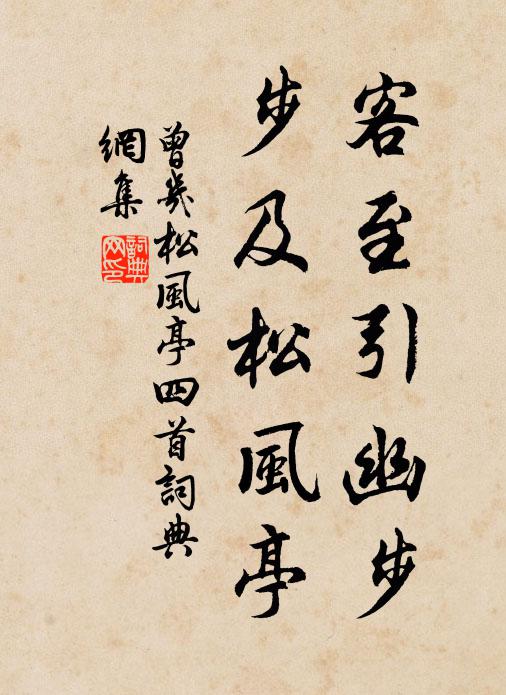 客至引幽步
步及松風亭
曾幾松風亭四首詞典
網集
詞典
网印